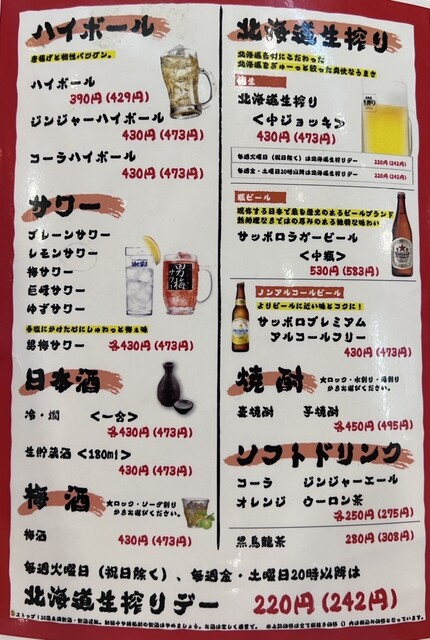 ハイボール
唐揚げと相性バツグン。
ハイボール
390円(429円)
ジンジャーハイボール
430円(473円)
コーラハイボール
430円(473円)
サワー
プレーンサワー
レモンサワー
梅サワー
巨峰サワー
ゆずサワー
男梅サワー 各430円(473円)
日本酒
冷・燗 <一合>
各430円(473円)
生貯蔵酒 <180ml>
430円(473円)
梅酒
★ロック・ソーダ割りからお選びください。
梅酒 430円(473円)
北海道生搾り
北海道素材にこだわった
北海道をぎゅーっと搾った爽快なうまさ
北海道生搾り
<中ジョッキ>
430円(473円)
毎週火曜日(祝日除く)は北海道生搾りデー 220円(242円)
毎週金・土曜日20時以降は北海道生搾りデー 220円(242円)
瓶ビール
現存する日本で最も歴史のあるビールブランド
熱処理ならではの厚みのある独特な味わい
サッポロラガービール
<中瓶>
530円(583円)
ノンアルコールビール
よりビールに近い味とコクに!
サッポロプレミアム
アルコールフリー
430円(473円)
焼酎
★ロック・水割り・湯割りからお選びください。
麦焼酎 芋焼酎
各450円(495円)
ソフトドリンク
コーラ ジンジャーエール
オレンジ ウーロン茶
各250円(275円)
黒烏龍茶 280円(308円)
毎週火曜日(祝日除く)、毎週金・土曜日20時以降は
北海道生搾りデー 220円(242円)